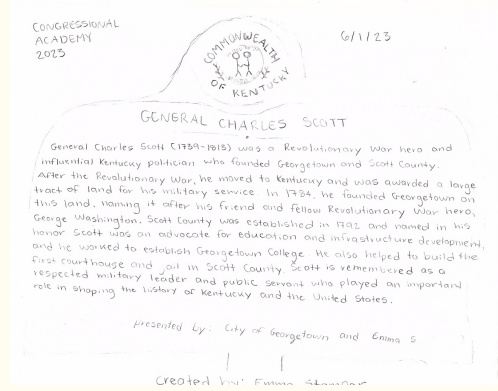 CONGRESSIONAL
ACADEMY
2023
6/1/23
COMMONWEALTH
OF KENTUCKY
GENERAL CHARLES SCOTT
General Charles Scott (1739-1813) was a Revolutionary War hero and
influential Kentucky politician who founded Georgetown and Scott County.
After the Revolutionary War, he moved to Kentucky and was awarded a large
tract of land for his military service. In 1784, he founded Georgetown on
this land, naming it after his friend and fellow Revolutionary War hero,
George Washington. Scott County was established in 1792 and named in his
honor Scott was an advocate for education and infrastructure development,
and he worked to establish Georgetown College. He also helped to build the
first courthouse and jail in Scott County. Scott is remembered as a
respected military leader and public servant who played an important
role in shaping the history of Kentucky and the United States.
presented by: City of Georgetown and Emma S
Created by: Emma